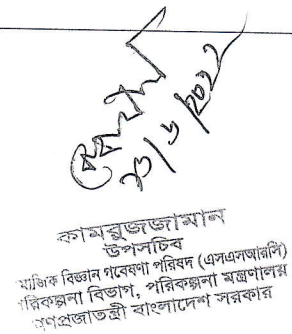 ২৩/৬/২০২২
কামরুজ্জামান
উপসচিব
মাজিক বিজ্ঞান গবেষণা পরিষদ (এসএসআরসি)
পরিকল্পনা বিভাগ, পরিকল্পনা মন্ত্রণালয়
গণপ্রজাতন্ত্রী বাংলাদেশ সরকার